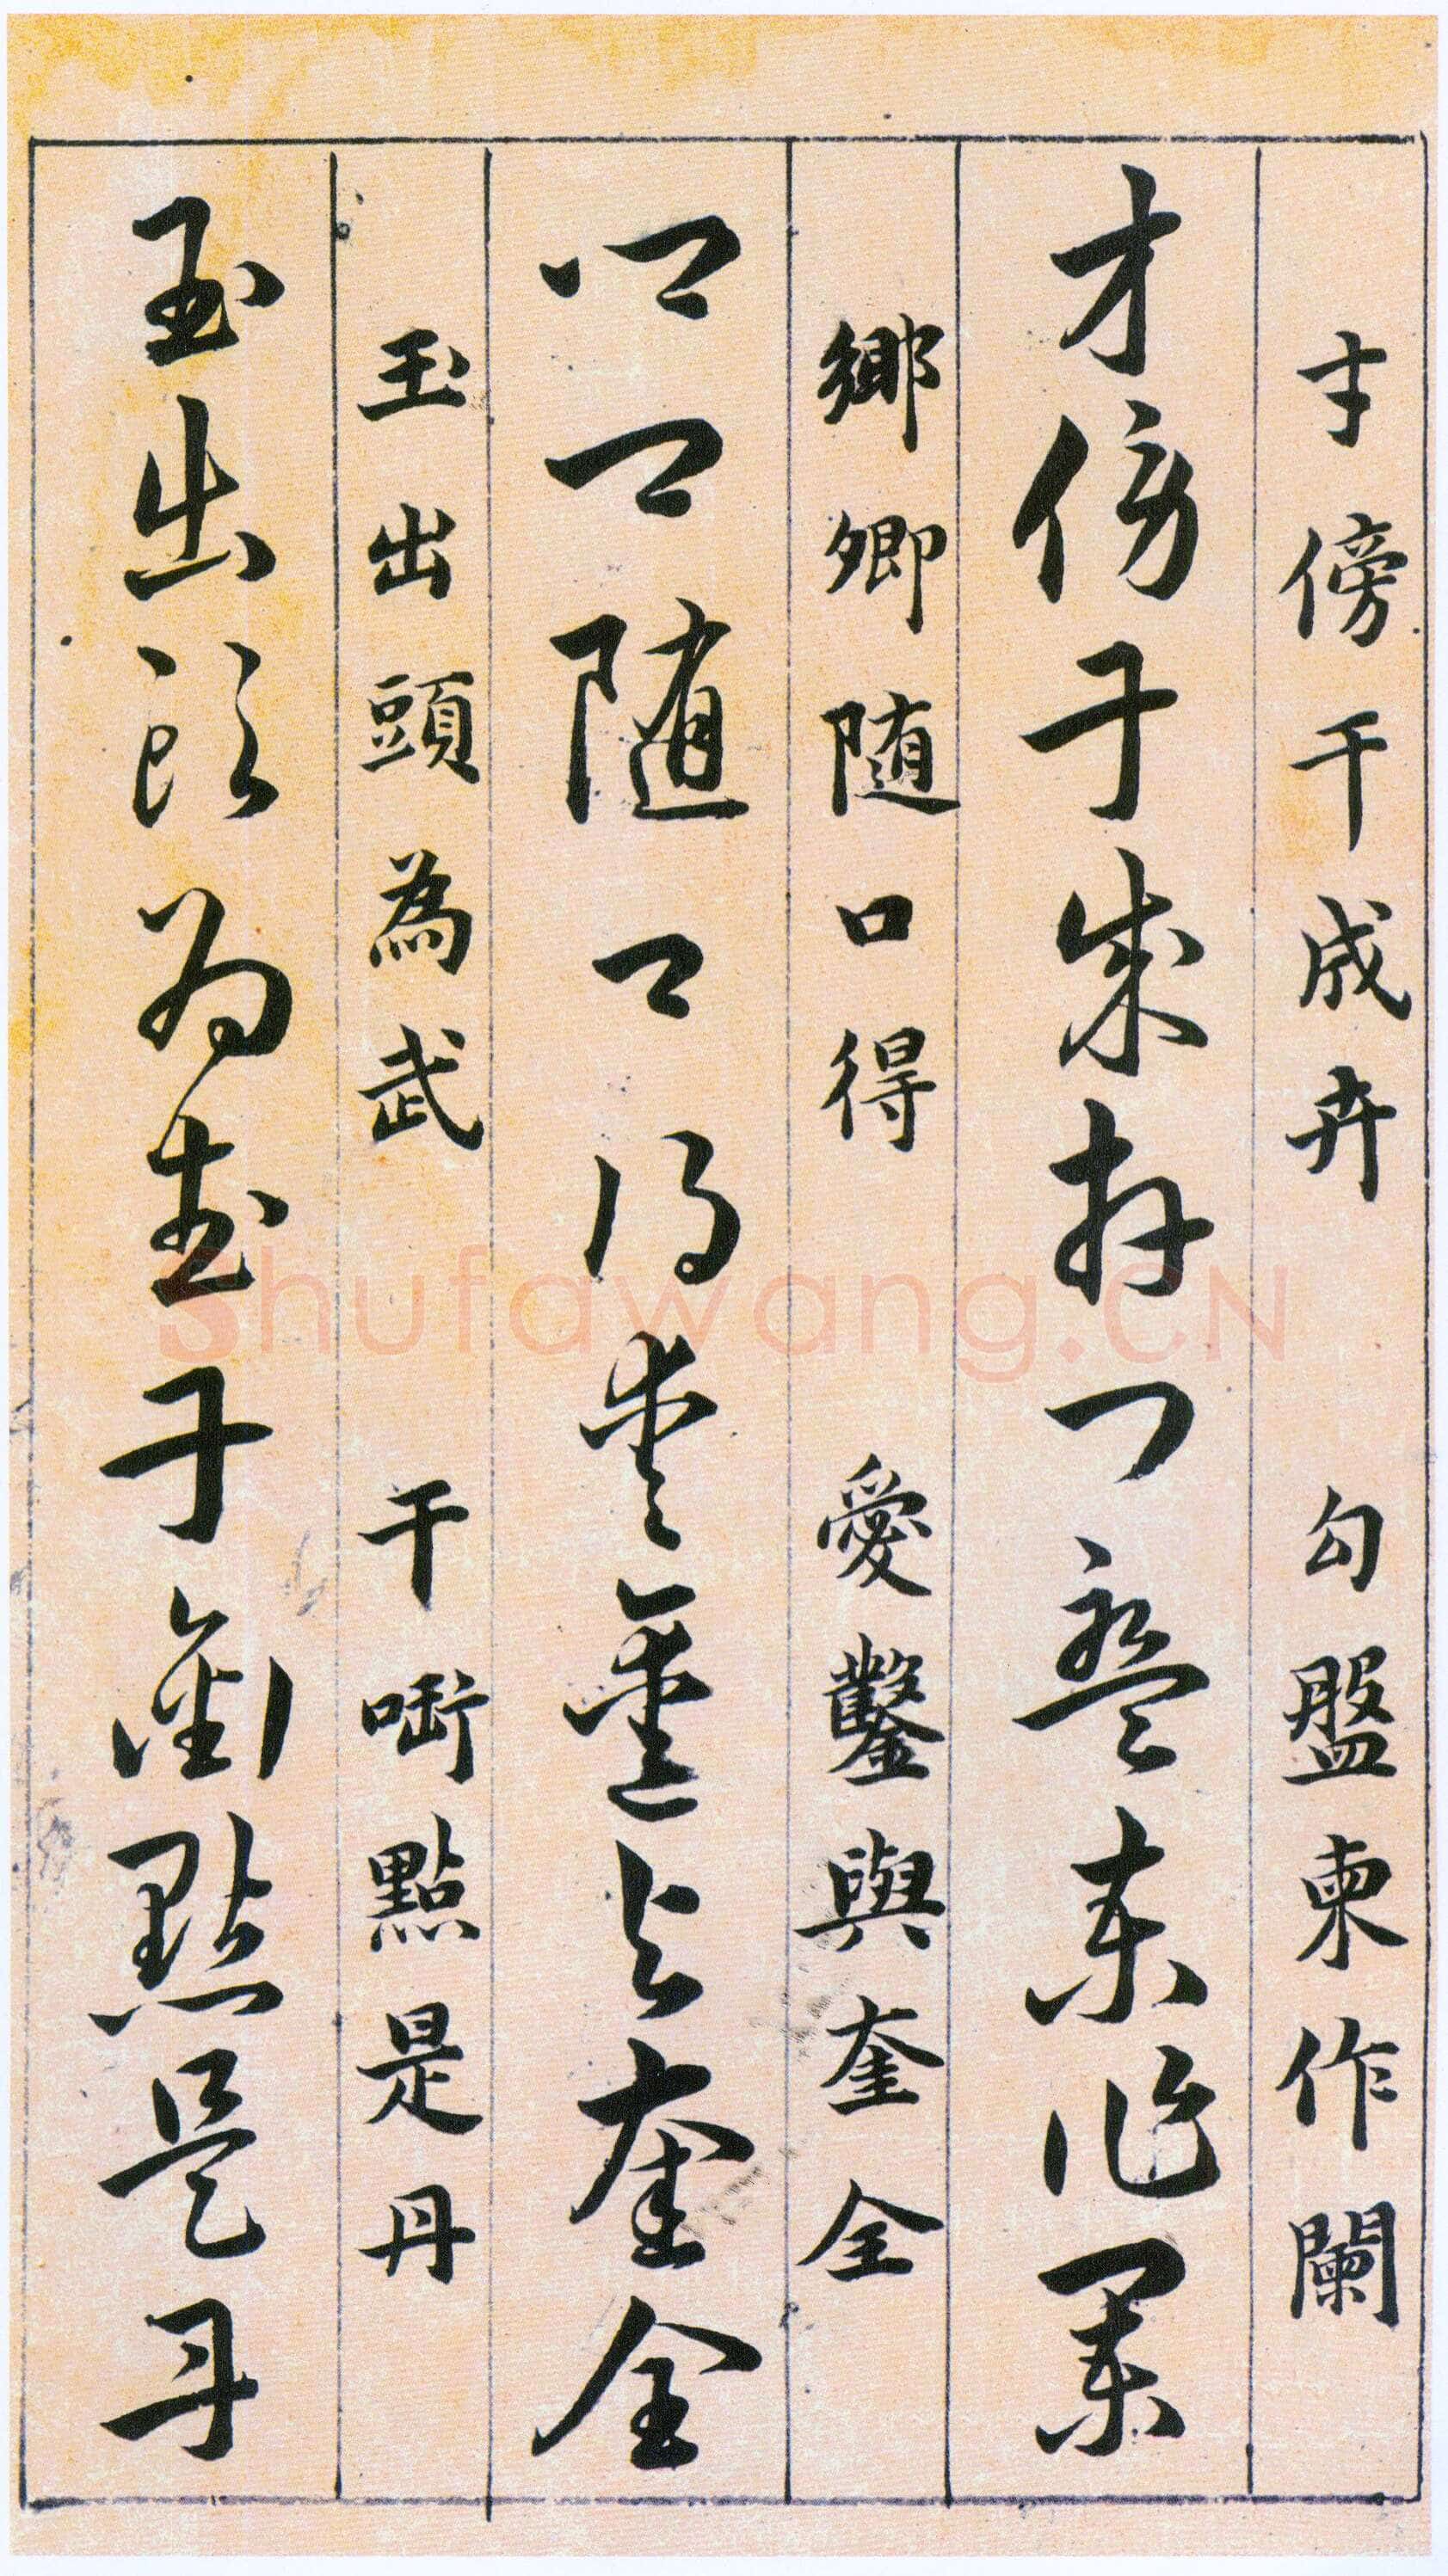 才傍干成卉　勾盤柬作闌
才傍干成卉勾盤柬作闌
鄉卿随口得　愛鑿與奎全
鄉卿随口得愛鑿與奎全
玉出頭為武　干啣點是丹
玉出頭為武干銜點是丹
Shufawang.CN